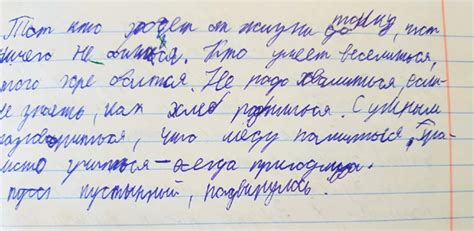 Тот кто ходет от жизни до познид, тот
ничего не боится. Кто умеет веселиться,
того хре боится. Не надо хвалиться, если
не знаеть, как хлеб родиться. С умным
разговориться, что меду напиться. Гра-
мсто учиться - всегда пригодица.
пустырный, подвирулось.